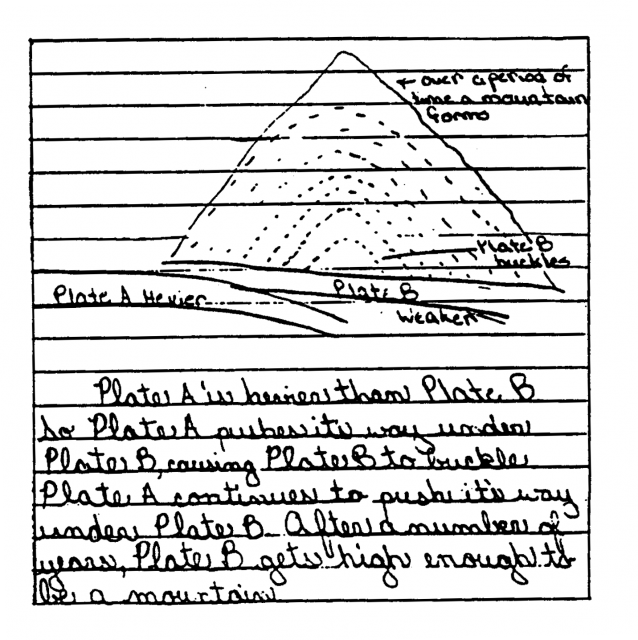 ← over a period of
time a mountain
forms
Plate B
buckles
Plate A Hevier
Plate B
Weaker
Plate A is hevier than Plate B
so Plate A pushes its way under
Plate B, causing Plate B to buckle
Plate A continues to push it's way
under Plate B. After a number of
years, Plate B gets high enough to
be a mountain